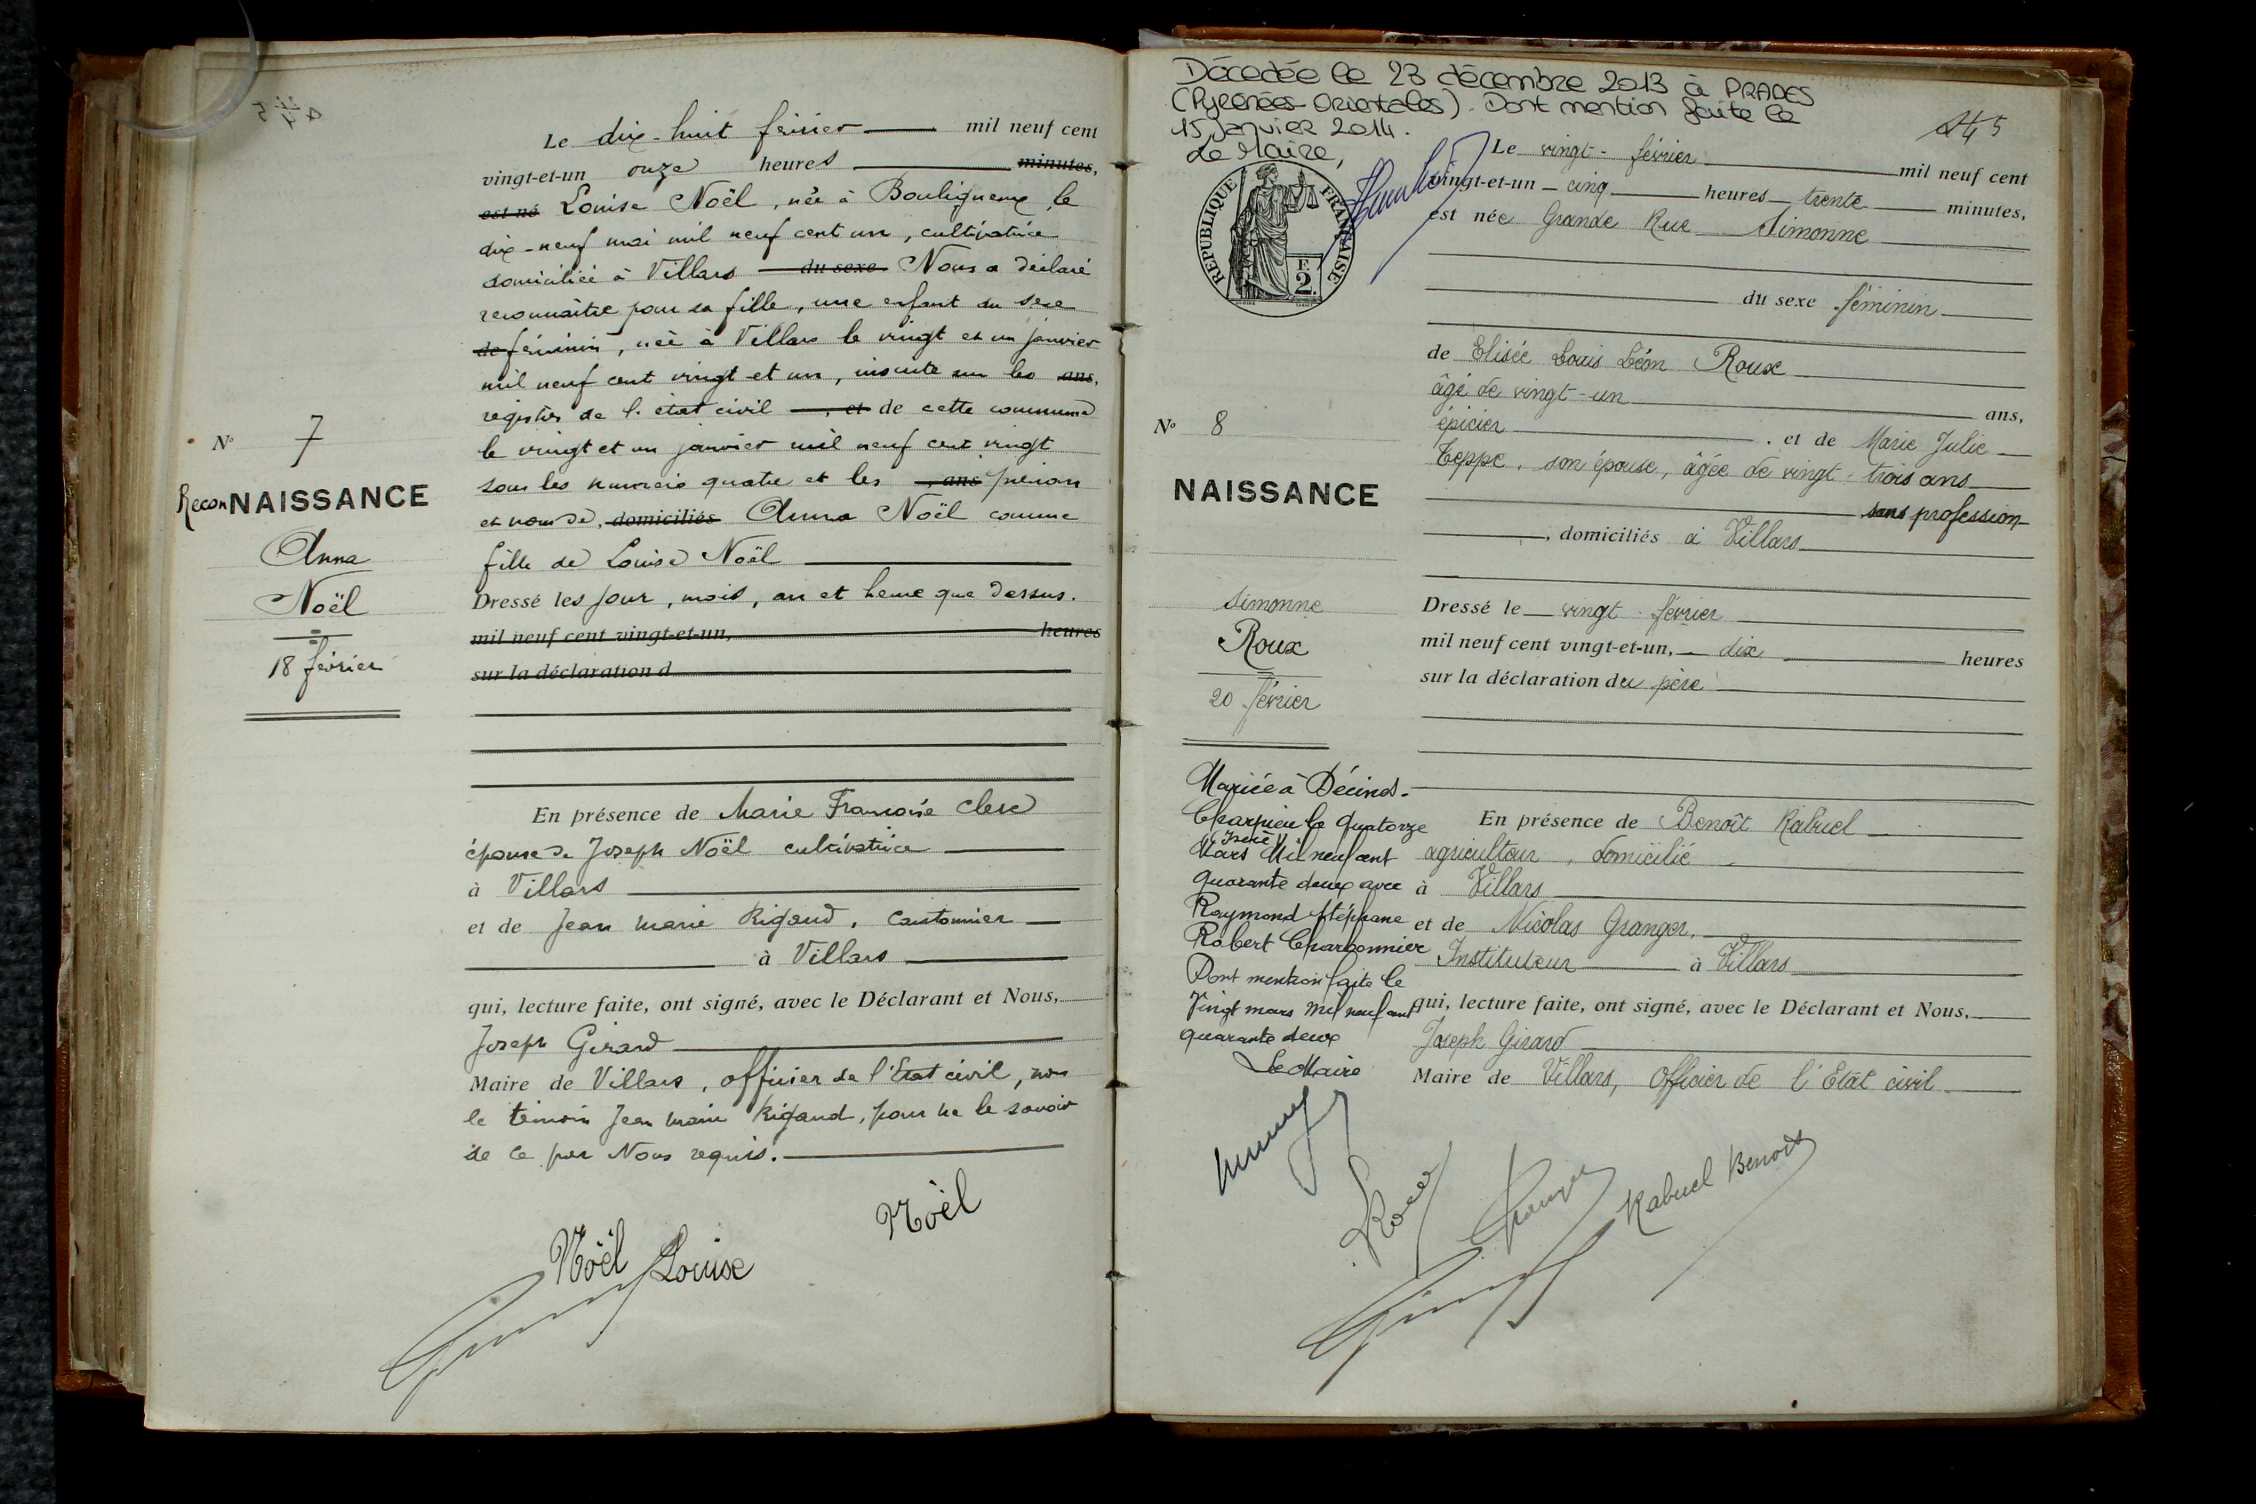 N° 7
ReconNAISSANCE
Anna
Noël
18 février
Le dix-huit février mil neuf cent
vingt-et-un onze heures minutes,
est né Louise Noël, née à Bouligneux, le
dix-neuf mai mil neuf cent un, cultivatrice
domiciliée à Villars du sexe Nous a déclaré
reconnaître pour sa fille, une enfant du sexe
de féminin, née à Villars le vingt et un janvier
mil neuf cent vingt et un, inscrite sur les ans,
registres de l'état civil , et de cette commune
le vingt et un janvier mil neuf cent vingt
sous les numéro quatre et les , ans prénom
et nom de, domiciliés Anna Noël comme
fille de Louise Noël
Dressé les jour, mois, an et heure que dessus.
mil neuf cent vingt-et-un, heures
sur la déclaration d
En présence de Marie Françoise Clerc
épouse de Joseph Noël cultivatrice
à Villars
et de Jean Marie Rigaud, Cantonnier
à Villars
qui, lecture faite, ont signé, avec le Déclarant et Nous,
Joseph Girard
Maire de Villars, officier de l'Etat civil, non
le témoin Jean Marie Rigaud, pour ne le savoir
de ce par Nous requis.
Noël
Noël Louise
Décedée le 23 décembre 2013 à PRADES
(Pyrénées-Orientales). Dont mention faite le
15 janvier 2014.
Le Maire,
RÉPUBLIQUE FRANÇAISE
F.
2.
5
Le vingt-février mil neuf cent
vingt-et-un cinq heures trente minutes,
est née Grande Rue Simonne
du sexe féminin
de Elisée Louis Léon Roux
âgé de vingt-un ans,
épicier , et de Marie Julie
Teppe, son épouse, âgée de vingt-trois ans
sans profession
, domiciliés à Villars
Dressé le vingt février
mil neuf cent vingt-et-un, dix heures
sur la déclaration du père
En présence de Benoît Rabuel
agriculteur, domicilié
à Villars
et de Nicolas Granger,
Instituteur à Villars
qui, lecture faite, ont signé, avec le Déclarant et Nous,
Joseph Girard
Maire de Villars, Officier de l'Etat civil
N° 8
NAISSANCE
Simonne
Roux
20 février
Mariée à Décines-
Charpieu le quatorze
(Isère)
Mars Mil neuf cent
quarante deux avec
Raymond Stéphane
Robert Charbonnier
Dont mention faite le
Vingt mars mil neuf cent
quarante deux
Le Maire
Roux Granger Rabuel Benoit